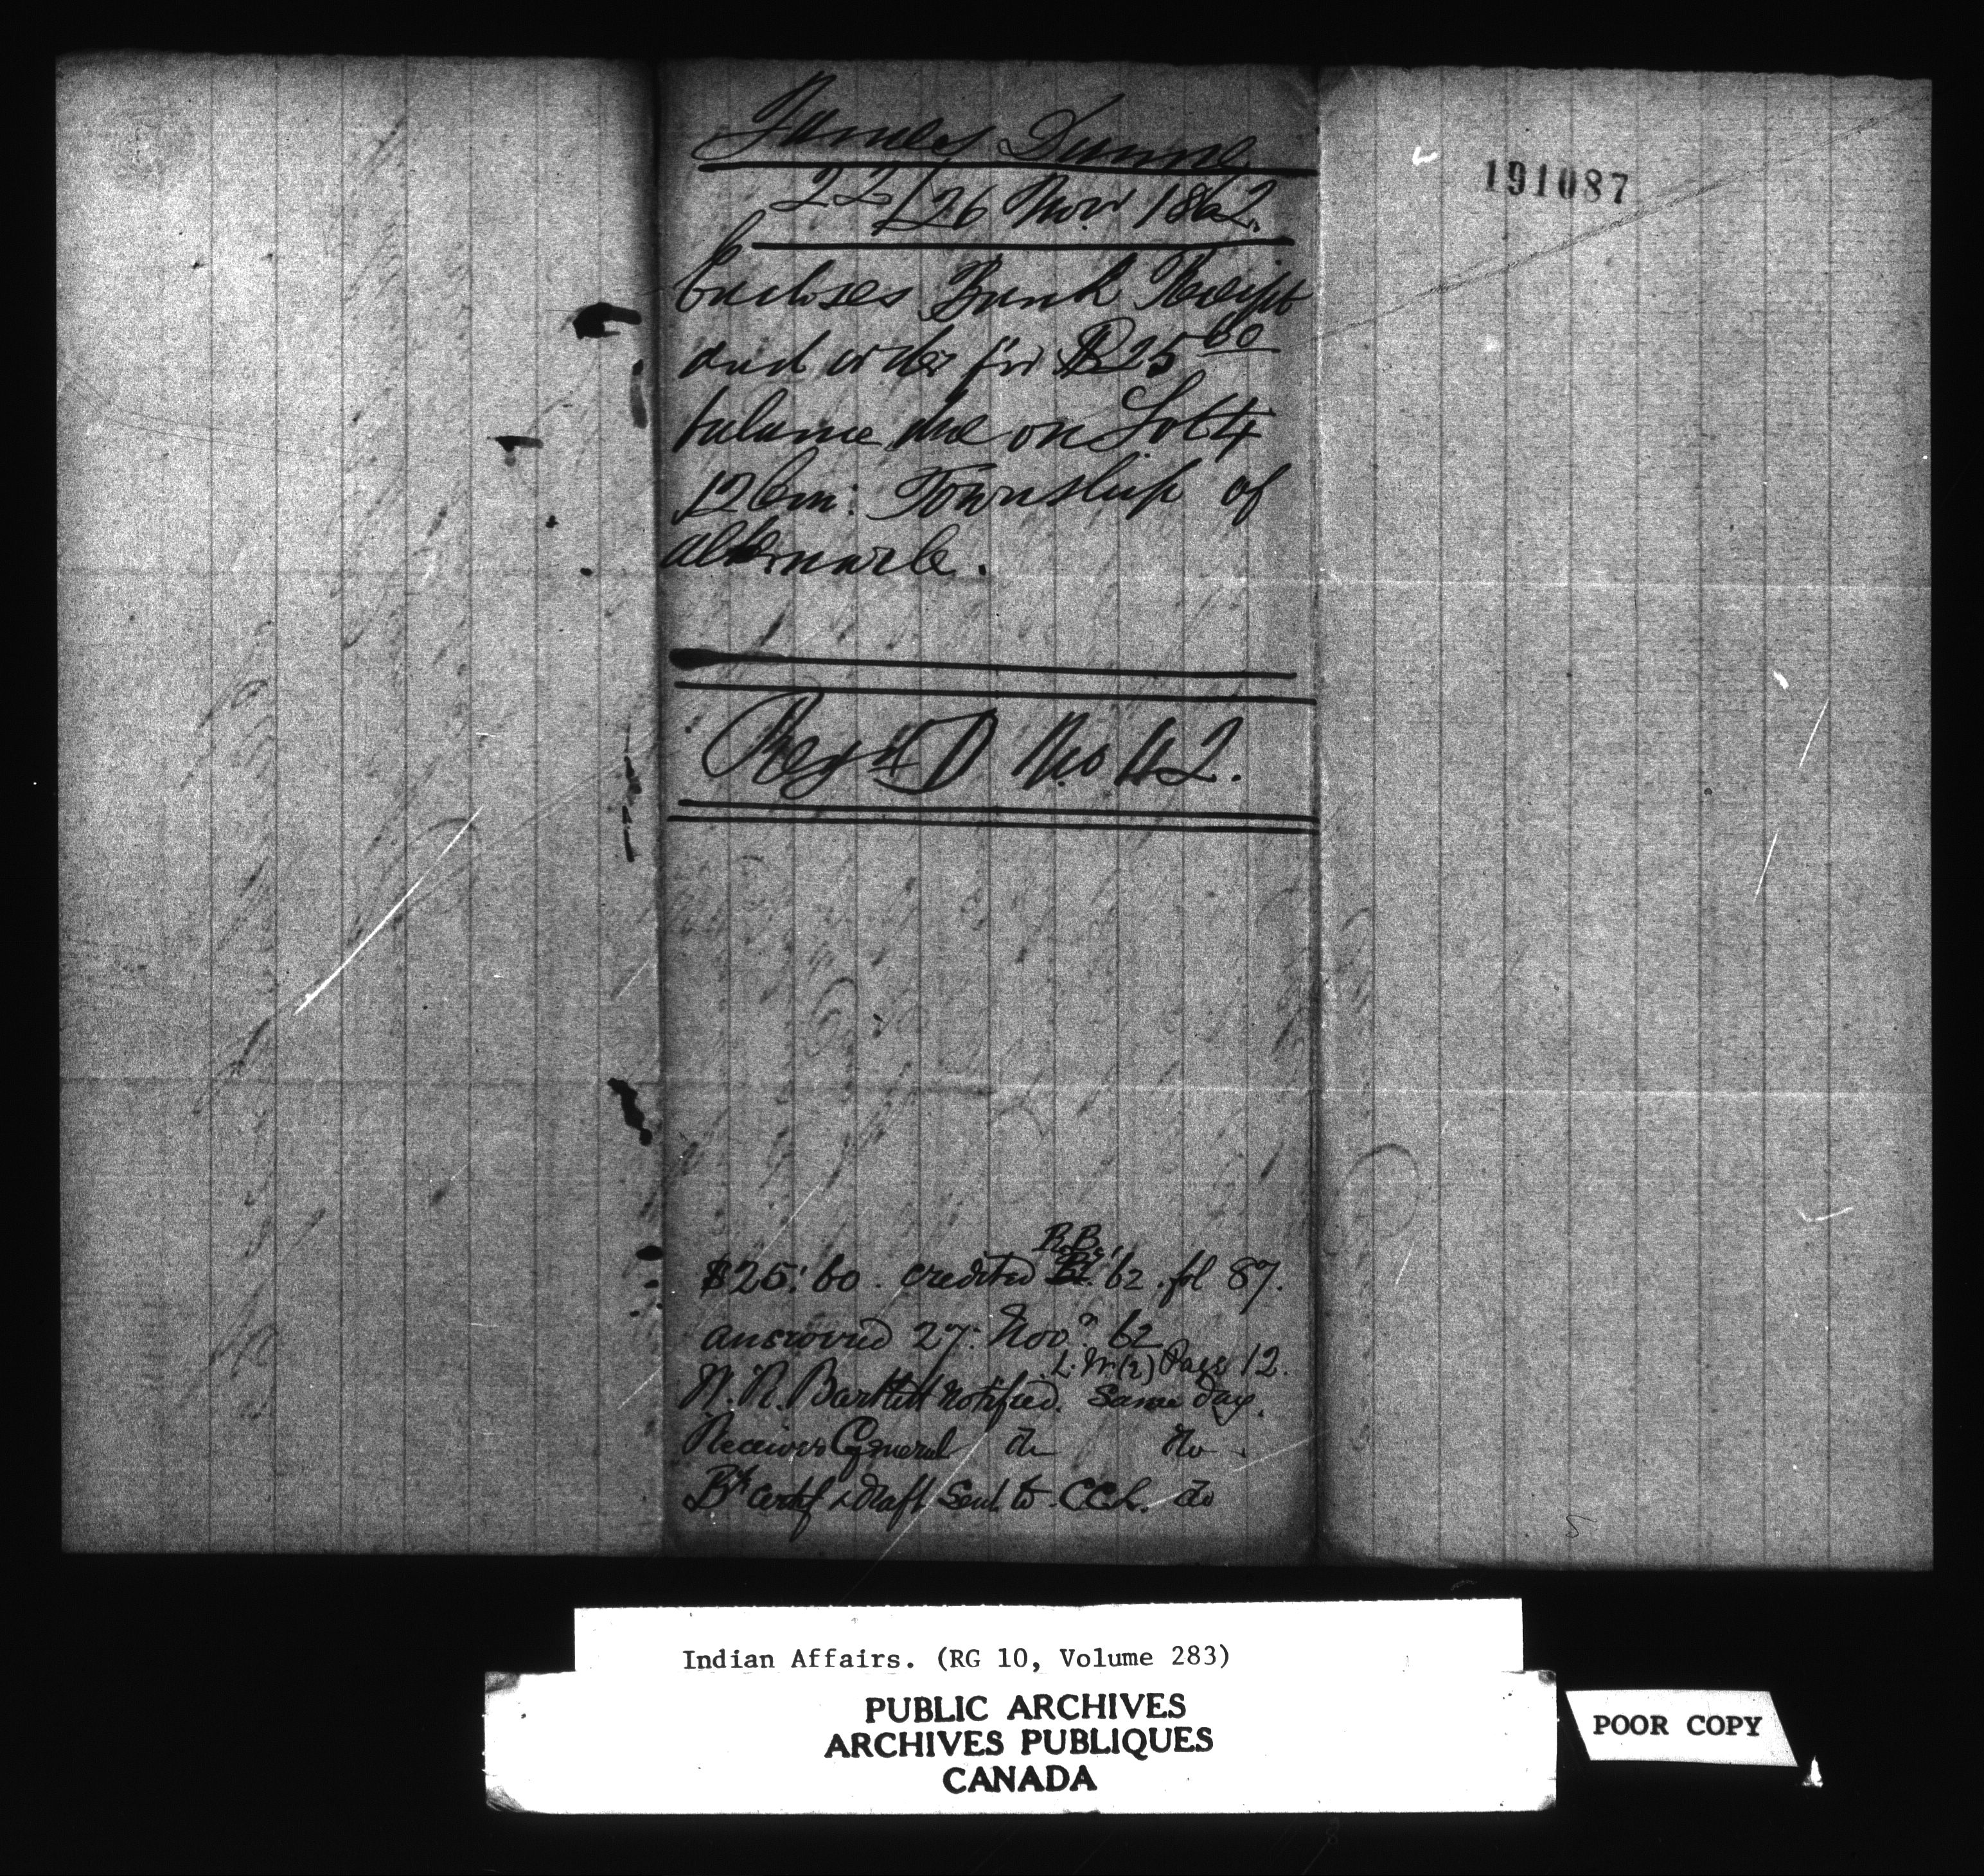 James Dunne
22/26 Novr 1862.
Encloses Bank Receipt
and order for $25 60
balance due on Lot 4
12 Con: Township of
Albemarle.
191087
Regd D No 42.
R.B.
$25:60. credited 62. fol 87.
answered 27: Nov. 62
L. M(2) Page 12.
W. R. Bartlett notified. Same day.
Receiver General do do.
Bk certf & draft sent to C.C.L. do
5
Indian Affairs. (RG 10, Volume 283)
PUBLIC ARCHIVES
ARCHIVES PUBLIQUES
CANADA
POOR COPY